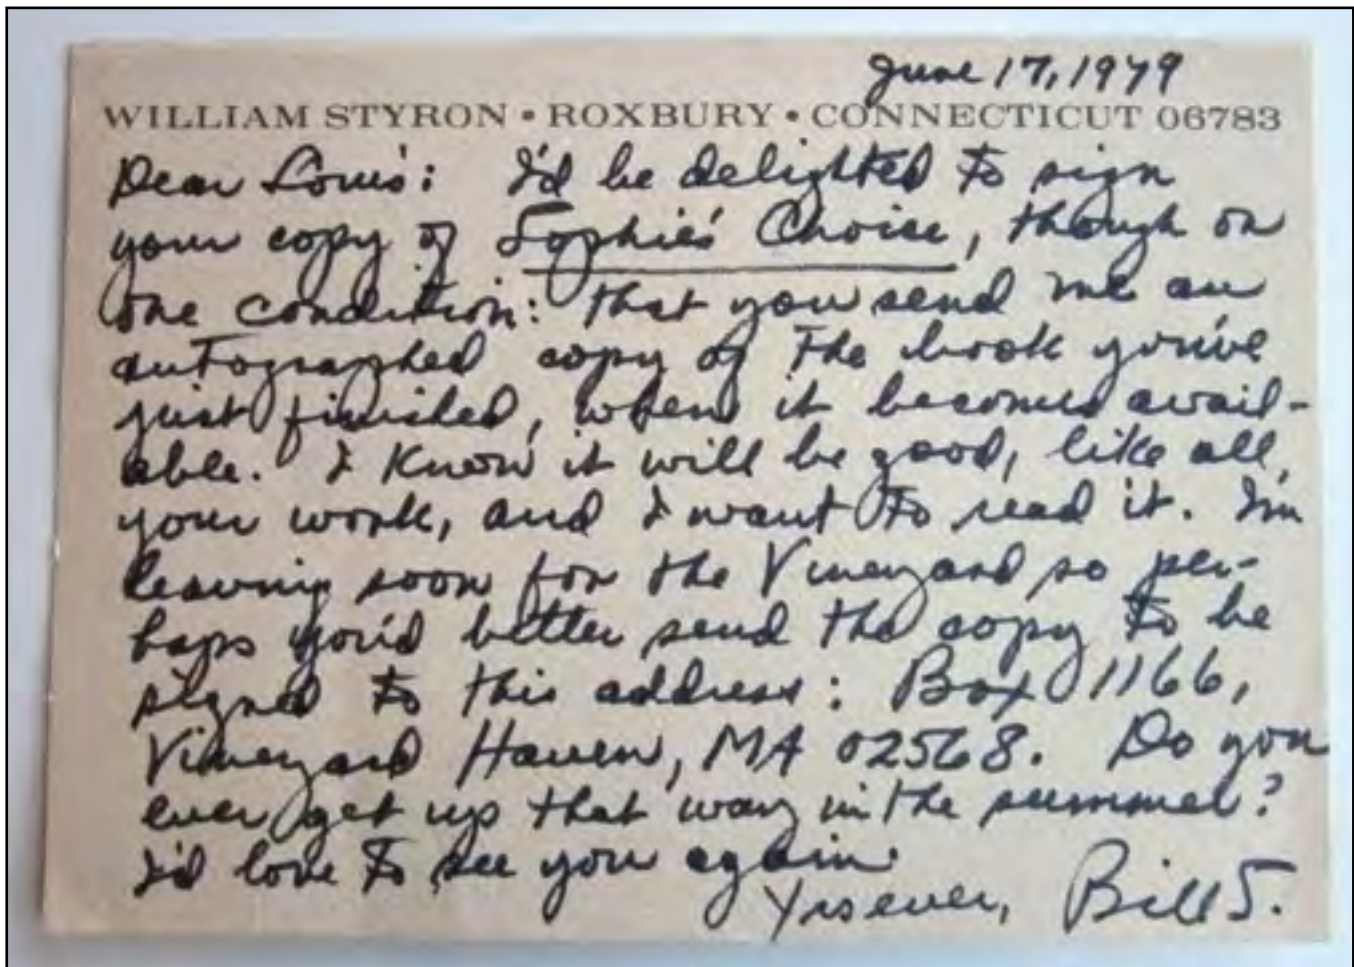 June 17, 1979
WILLIAM STYRON • ROXBURY • CONNECTICUT 06783
Dear Louis: I'd be delighted to sign
your copy of Sophie's Choice, though on
one condition: that you send me an
autographed copy of the book you've
just finished, when it becomes avail-
able. I know it will be good, like all
your work, and I want to read it. I'm
leaving soon for the Vineyard so per-
haps you'd better send the copy to be
signed to this address: Box 1166,
Vineyard Haven, MA 02568. Do you
ever get up that way in the summer?
I'd love to see you again.
Yrs ever, Bill S.